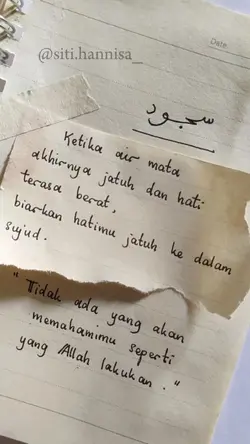 @siti.hannisa_
Date
سجود
Ketika air mata
akhirnya jatuh dan hati
terasa berat,
biarkan hatimu jatuh ke dalam
sujud.
"Tidak ada yang akan
memahamimu seperti
yang Allah lakukan."